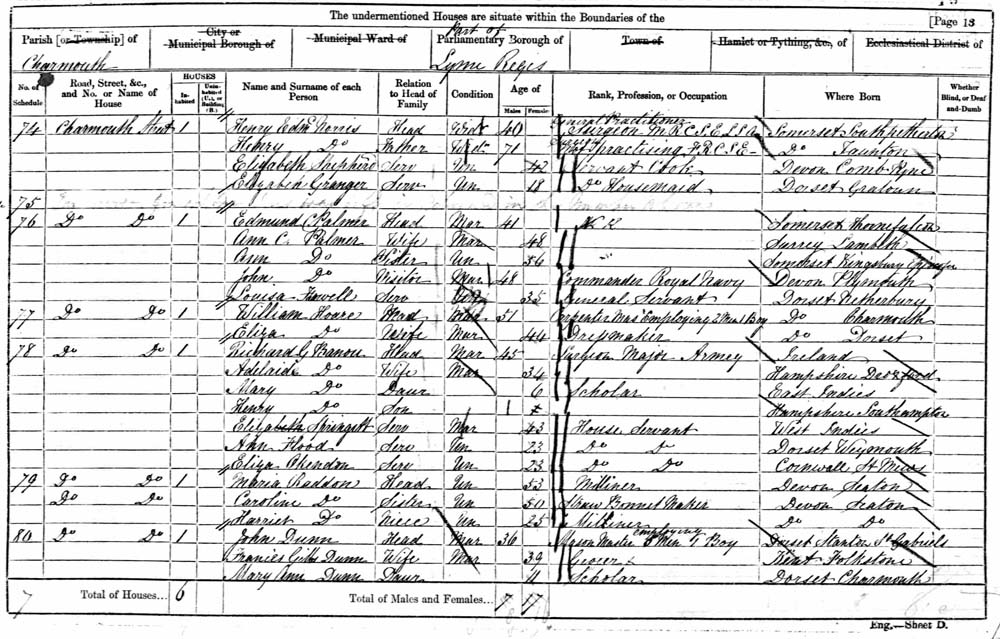 The undermentioned Houses are situate within the Boundaries of the
[Page 13
Parish [or Township] of
City or Municipal Borough of
Municipal Ward of
Part of
Parliamentary Borough of
Town of
Hamlet or Tything, &c., of
Ecclesiastical District of
Charmouth
Lyme Regis
No. of Schedule
Road, Street, &c., and No. or Name of House
HOUSES
Inhabited
Uninhabited (U.), or Building (B.)
Name and Surname of each Person
Relation to Head of Family
Condition
Age of
Males
Females
Rank, Profession, or Occupation
Where Born
Whether Blind, or Deaf-and-Dumb
74 Charmouth Street 1 Henry Edm Norris Head Widr 40 General Practitioner Surgeon M.R.C.S.E. L.S.A. Somerset Southpetherton
Henry Do Father Widr 71 Not practising F.R.C.S.E. Do Taunton
Elizabeth Shepherd Serv Un 42 Servant Cook Devon Comb
Elizabeth Granger Serv Un 18 Do Housemaid Dorset
75
76 Do Do 1 Edmund C Palmer Head Mar 41 Somerset Thornfalcon
Ann C. Palmer Wife Mar 48 Surrey Lambeth
Ann Do Sister Un 56 Somerset Kingsbury
John Do Visitor Mar 48 Commander Royal Navy Devon Plymouth
Louisa Serv 35 General Servant Dorset Netherbury
77 Do Do 1 William Hoare Head Mar 51 Carpenter Mas employing 2 Men 1 Boy Do Charmouth
Eliza Do Wife Mar 44 Dressmaker Do Dorset
78 Do Do 1 Richard G Head Mar 45 Surgeon Major Armey Ireland
Adelaide Do Wife Mar 34 Hampshire
Mary Do Daur 6 Scholar East Indies
Henry Do Son 1 Hampshire Southampton
Elizabeth Springett Serv Mar 43 House Servant West Indies
Ann Flood Serv Un 23 Do Do Dorset Weymouth
Eliza Serv Un 23 Do Do Cornwall St
79 Do Do 1 Maria Raddon Head Un 53 Milliner Devon Seaton
Do Do Caroline Do Sister Un 50 Straw Bonnet Maker Devon Seaton
Harriet Do Niece Un 25 Milliner Do Do
80 Do Do 1 John Dunn Head Mar 36 Mason Master employing Men 1 Boy Dorset Stanton St Gabriels
Frances Gibbs Dunn Wife Mar 39 Grocer Kent Folkstone
Mary Ann Dunn Daur 11 Scholar Dorset Charmouth
7 Total of Houses... 6 Total of Males and Females... 7 17
Eng.—Sheet D.